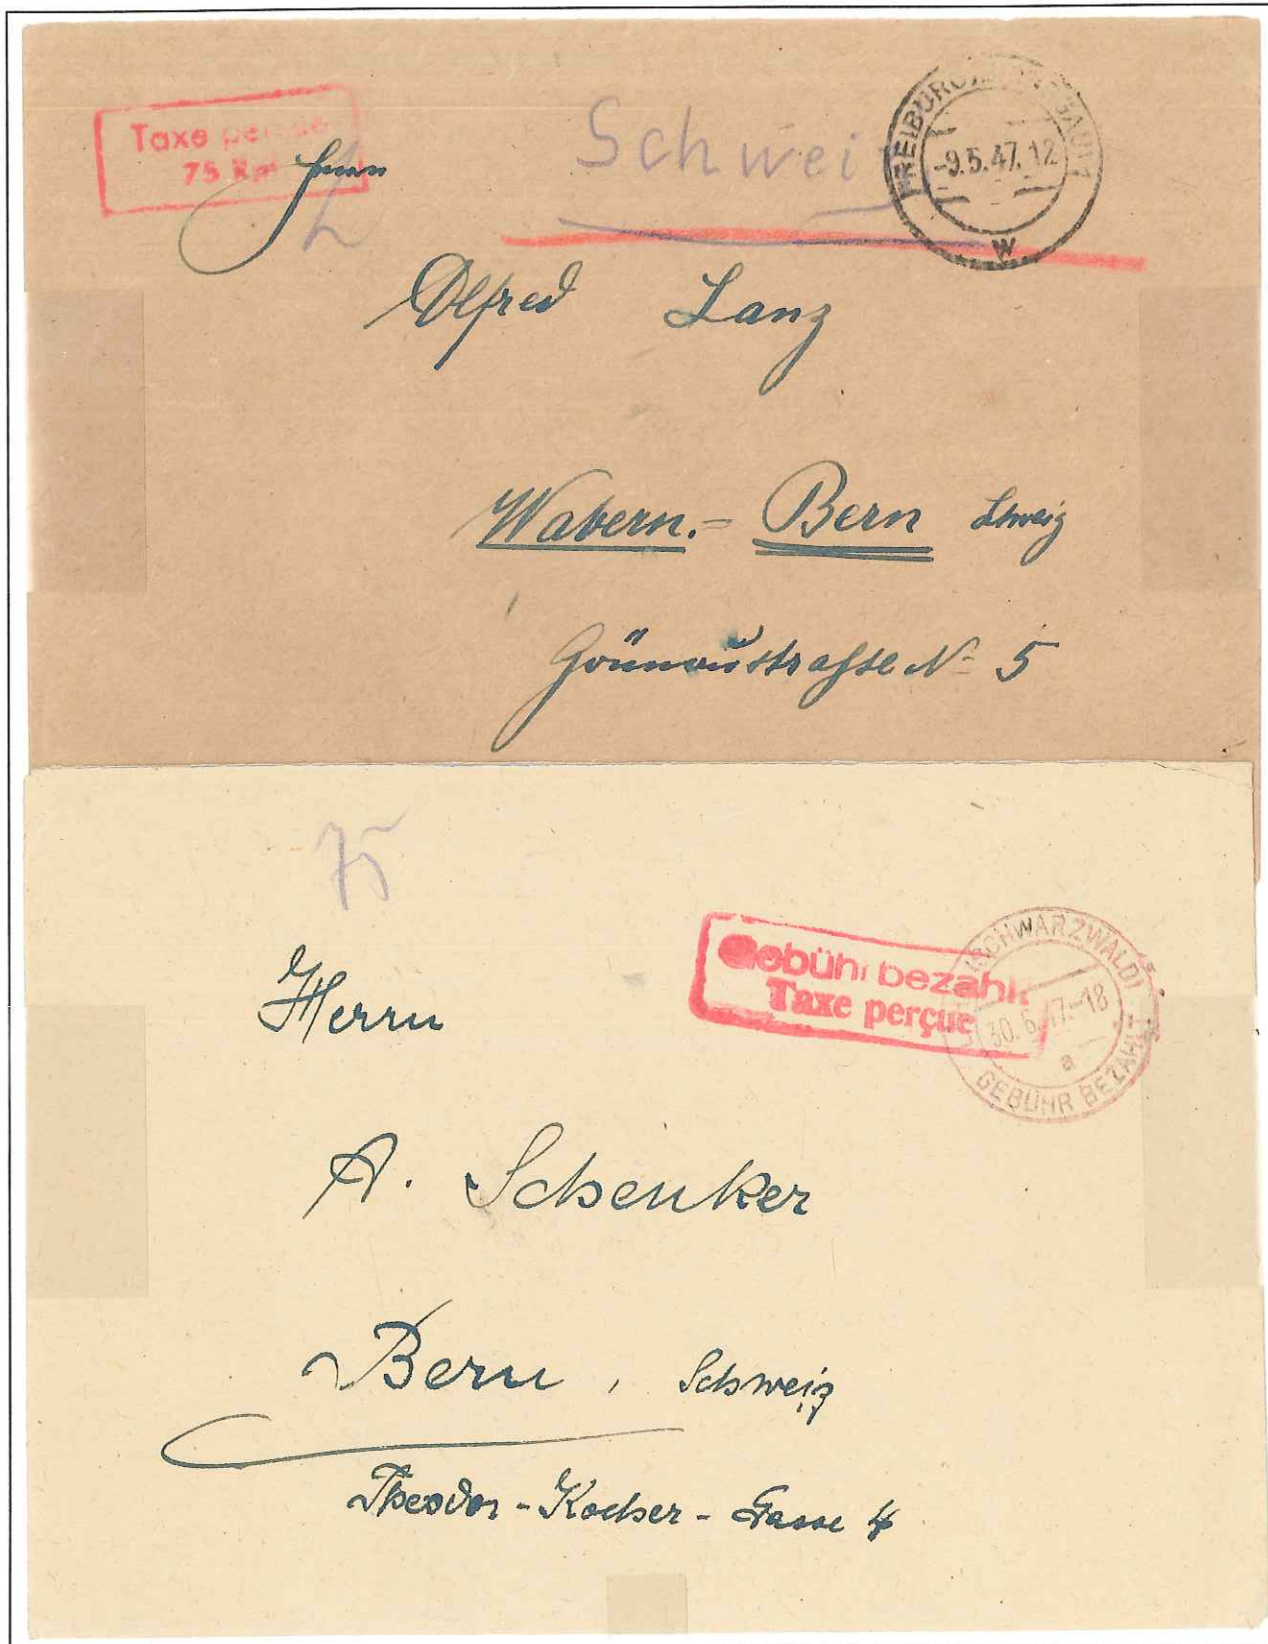 Taxe perçue
75 Rpf
Schweiz
FREIBURG
-9.5.47.12
w
Herrn
Alfred Lanz
Wabern.= Bern Schweiz
Grünaustrasse № 5
75
Gebühr bezahlt
Taxe perçue
(SCHWARZWALD)
30.6.47.-18
a
GEBÜHR BEZAHLT
Herrn
A. Schenker
Bern, Schweiz
Theodor-Kocher-Gasse 4